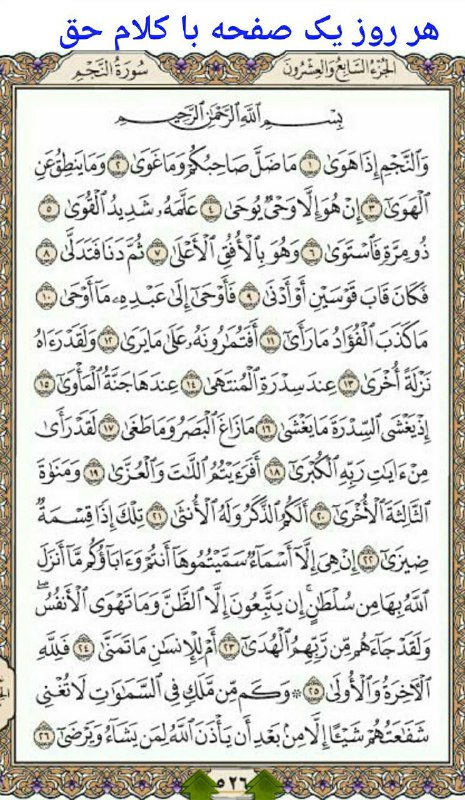 هر روز یک صفحه با کلام حق
الجزء السابع والعشرون
سورة النجم
بِسْمِ اللَّهِ الرَّحْمَٰنِ الرَّحِيمِ
وَالنَّجْمِ إِذَا هَوَىٰ ١ مَا ضَلَّ صَاحِبُكُمْ وَمَا غَوَىٰ ٢ وَمَا يَنطِقُ عَنِ
الْهَوَىٰ ٣ إِنْ هُوَ إِلَّا وَحْيٌ يُوحَىٰ ٤ عَلَّمَهُ شَدِيدُ الْقُوَىٰ ٥
ذُو مِرَّةٍ فَاسْتَوَىٰ ٦ وَهُوَ بِالْأُفُقِ الْأَعْلَىٰ ٧ ثُمَّ دَنَا فَتَدَلَّىٰ ٨
فَكَانَ قَابَ قَوْسَيْنِ أَوْ أَدْنَىٰ ٩ فَأَوْحَىٰ إِلَىٰ عَبْدِهِ مَا أَوْحَىٰ ١٠
مَا كَذَبَ الْفُؤَادُ مَا رَأَىٰ ١١ أَفَتُمَارُونَهُ عَلَىٰ مَا يَرَىٰ ١٢ وَلَقَدْ رَءَاهُ
نَزْلَةً أُخْرَىٰ ١٣ عِندَ سِدْرَةِ الْمُنتَهَىٰ ١٤ عِندَهَا جَنَّةُ الْمَأْوَىٰ ١٥
إِذْ يَغْشَى السِّدْرَةَ مَا يَغْشَىٰ ١٦ مَا زَاغَ الْبَصَرُ وَمَا طَغَىٰ ١٧ لَقَدْ رَأَىٰ
مِنْ ءَايَاتِ رَبِّهِ الْكُبْرَىٰ ١٨ أَفَرَءَيْتُمُ اللَّاتَ وَالْعُزَّىٰ ١٩ وَمَنَوٰةَ
الثَّالِثَةَ الْأُخْرَىٰ ٢٠ أَلَكُمُ الذَّكَرُ وَلَهُ الْأُنثَىٰ ٢١ تِلْكَ إِذًا قِسْمَةٌ
ضِيزَىٰ ٢٢ إِنْ هِيَ إِلَّا أَسْمَاءٌ سَمَّيْتُمُوهَا أَنتُمْ وَءَابَاؤُكُم مَّا أَنزَلَ
اللَّهُ بِهَا مِن سُلْطَانٍ إِن يَتَّبِعُونَ إِلَّا الظَّنَّ وَمَا تَهْوَى الْأَنفُسُ ۖ
وَلَقَدْ جَاءَهُم مِّن رَّبِّهِمُ الْهُدَىٰ ٢٣ أَمْ لِلْإِنسَانِ مَا تَمَنَّىٰ ٢٤ فَلِلَّهِ
الْآخِرَةُ وَالْأُولَىٰ ٢٥ ۞ وَكَم مِّن مَّلَكٍ فِي السَّمَاوَاتِ لَا تُغْنِي
شَفَاعَتُهُمْ شَيْئًا إِلَّا مِن بَعْدِ أَن يَأْذَنَ اللَّهُ لِمَن يَشَاءُ وَيَرْضَىٰ ٢٦
٥٢٦